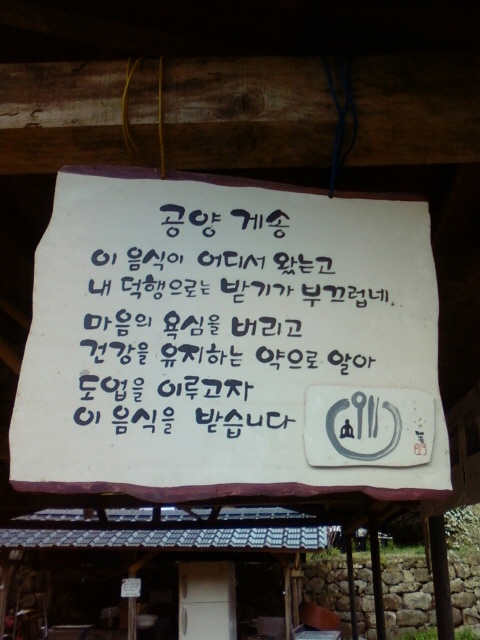 공양 게송
이 음식이 어디서 왔는고
내 덕행으로는 받기가 부끄럽네.
마음의 욕심을 버리고
건강을 유지하는 약으로 알아
도업을 이루고자
이 음식을 받습니다